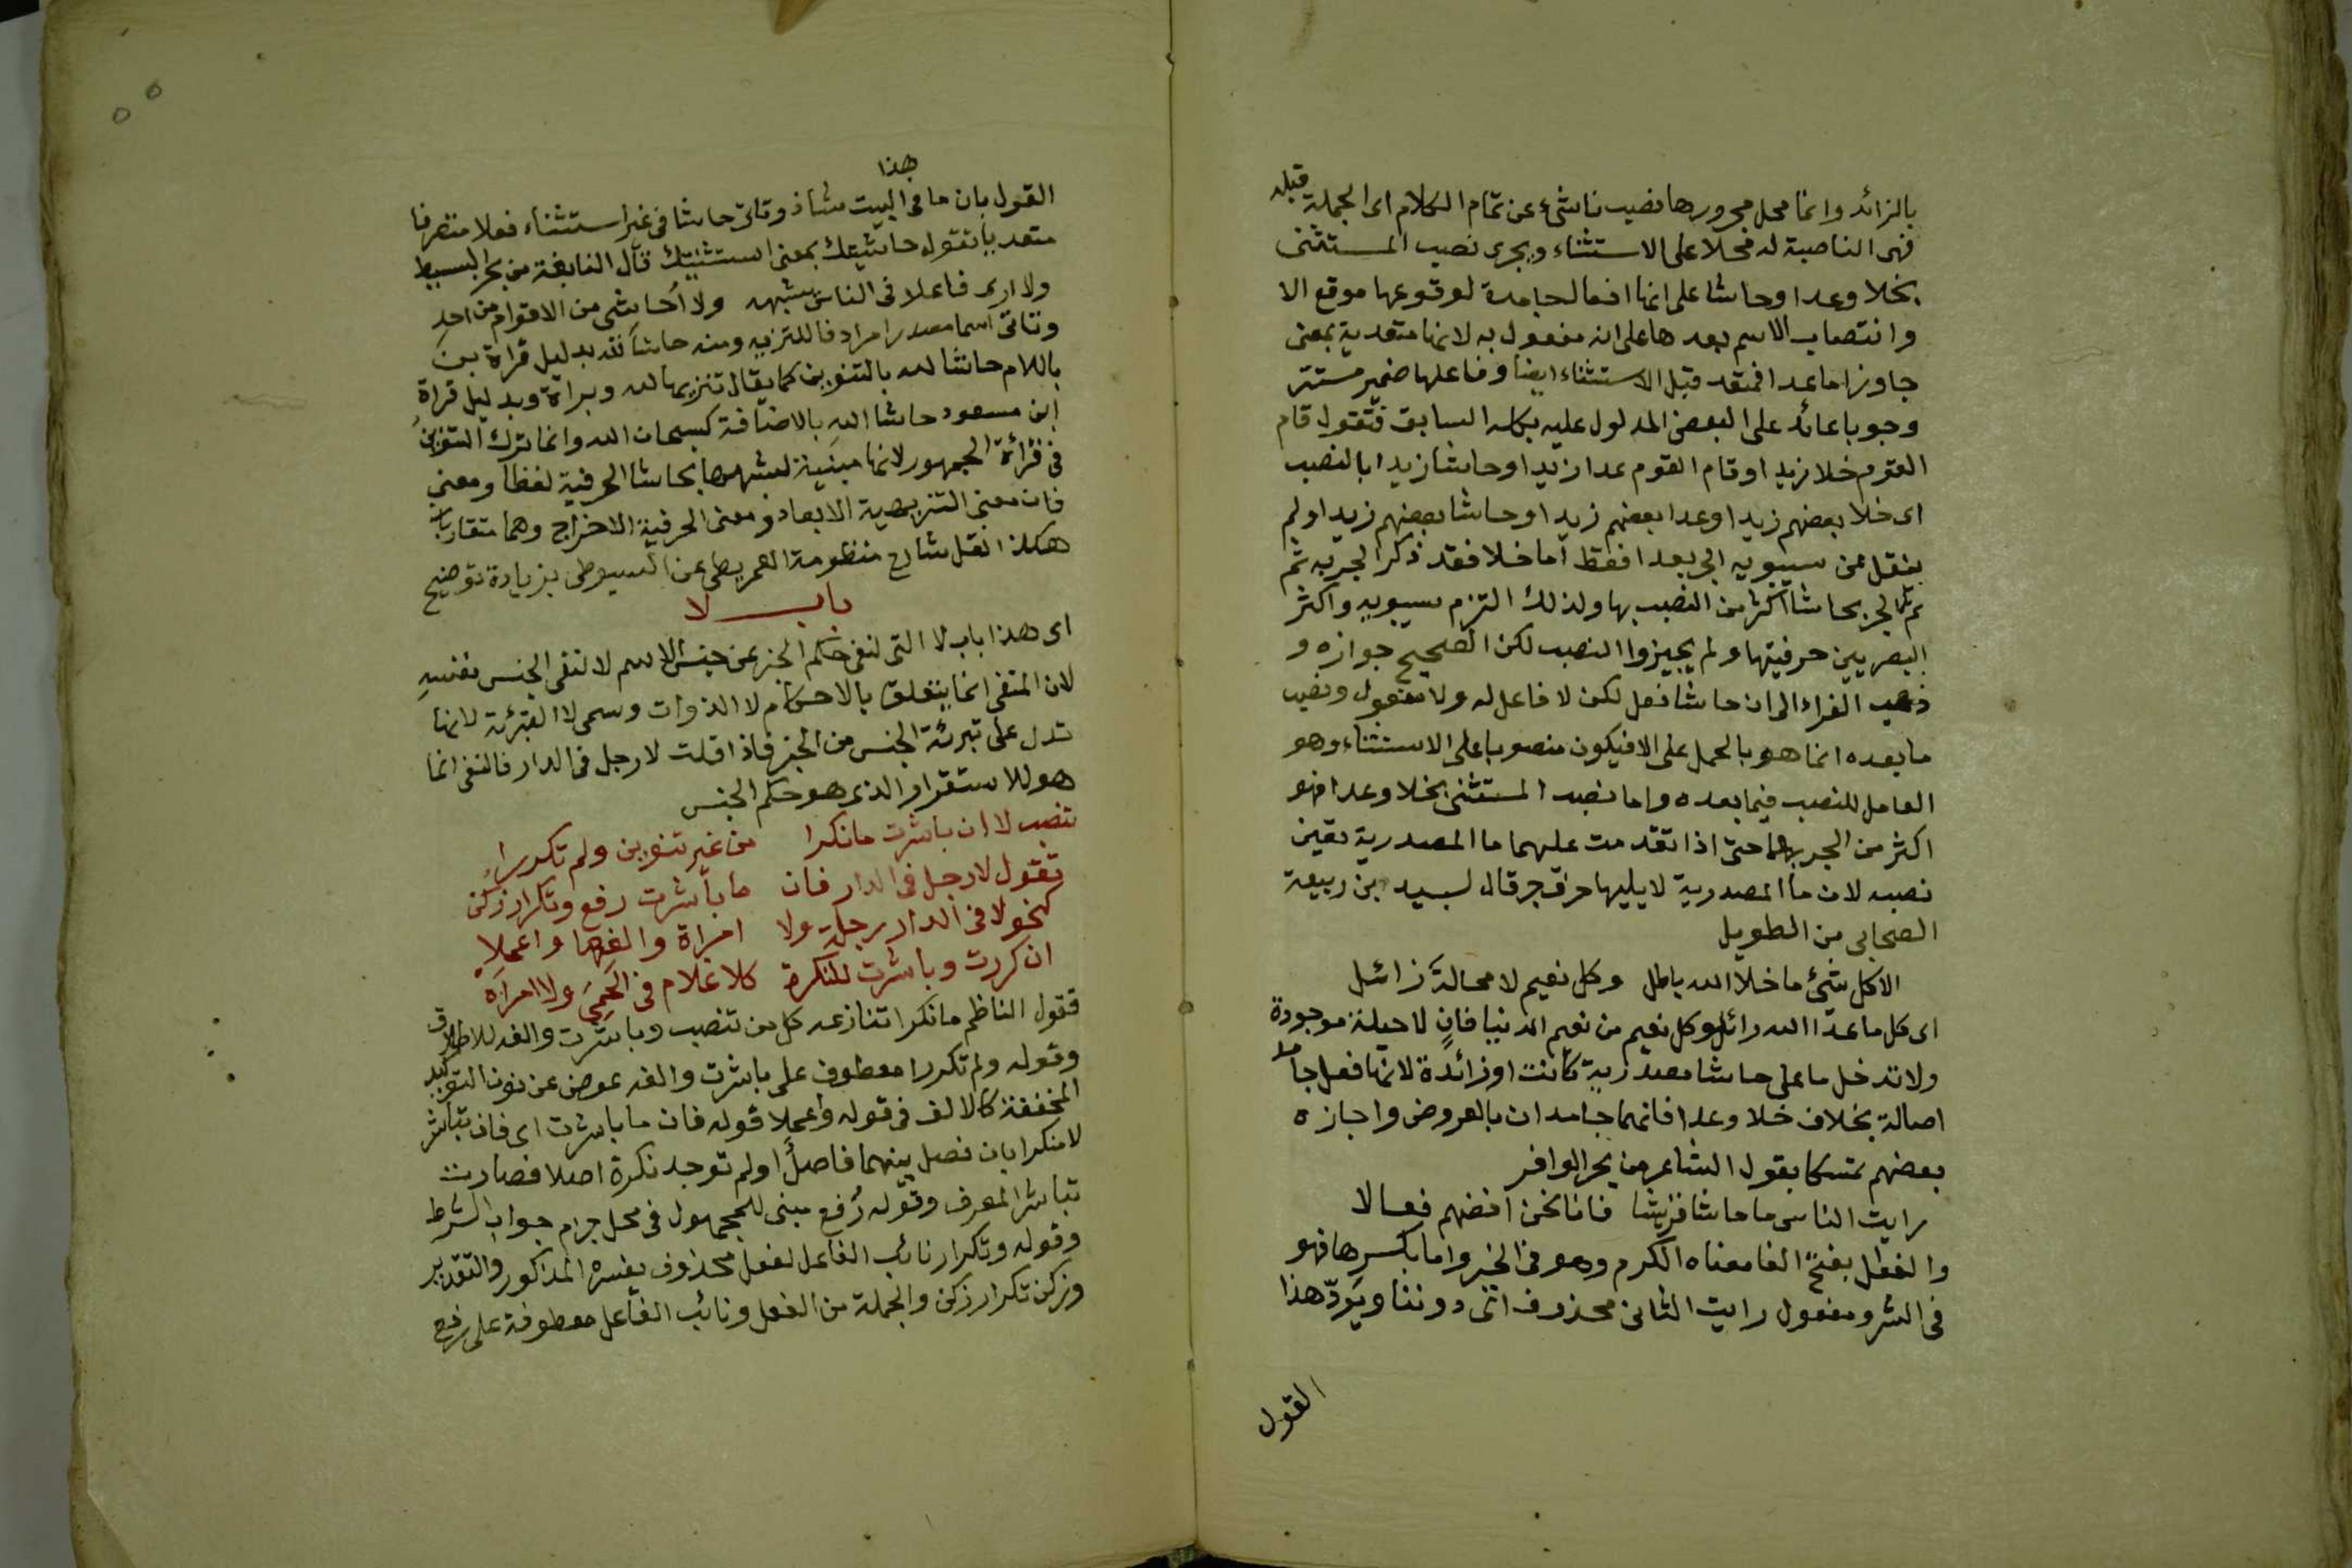 بالزائد وانما محل مجرورها نصيب ناشئ عن تمام الكلام اى الجملة قبله
فهى الناصبة له محلا على الاستثناء ويجرى نصب المستثنى
بخلا وعدا وحاشا على انها افعال جامدة لوقوعها موقع الا
وانتصاب الاسم بعدها على انه مفعول به لانها متعدية بمعنى
جاوز اما عدا فمتعد قبل الاستثناء ايضا وفاعلها ضمير مستتر
وجوبا عائد على البعض المدلول عليه بكله السابق فتقول قام
القوم خلا زيدا وقام القوم عدا زيدا وحاشا زيدا بالنصب
اى خلا بعضهم زيدا وعدا بعضهم زيدا وحاشا بعضهم زيدا ولم
ينقل عن سيبويه الجر بعدا فقط اما خلا فقد ذكر الجر به ثم
ثم الجر بحاشا اكثر من النصب بها ولذلك التزم سيبويه واكثر
البصريين حرفيتها ولم يجيزوا النصب لكن الصحيح جوازه و
ذهب الفراء الى ان حاشا فعل لكن لا فاعل له ولا مفعول ونصب
ما بعده انما هو بالحمل على الا فيكون منصوبا على الاستثناء وهو
العامل للنصب فيما بعده واما نصب المستثنى بخلا وعدا فهو
اكثر من الجر بهما حتى اذا تقدمت عليهما ما المصدرية تعين
نصبه لان ما المصدرية لا يليها حرف جر قال لبيد بن ربيعة
الصحابى من الطويل
الا كل شئ ما خلا الله باطل وكل نعيم لا محالة زائل
اى كل ما عدا الله زائل وكل نعيم من نعيم الدنيا فانٍ لا حيلة موجودة
ولا تدخل ما على حاشا مصدرية كانت او زائدة لانها فعل جامد
اصالة بخلاف خلا وعدا فانهما جامدان بالعروض واجازه
بعضهم تمسكا بقول الشاعر من بحر الوافر
رايت الناس ما حاشا قريشا فانا نحن افضهم فعالا
والفعال بفتح الفا معناه الكرم وهو فى الخير واما بكسرها فهو
فى الشر ومفعول رايت الثانى محذوف اى دوننا ويردّ هذا
القول
هذا
القول بان ما فى البيت شاذ وتاتى حاشا فى غير استثناء فعلا متصرفا
متعديا تقول حاشيتك بمعنى استثنيتك قال النابغة من بحر البسيط
ولا ارى فاعلا فى الناس يشبهه ولا أحاشى من الاقوام من احدِ
وتاتى اسما مصدرا مرادفا للتنزيه ومنه حاشا لله بدليل قراة بعض
باللام حاشا لله بالتنوين كما يقال تنزيها لله وبراة وبدليل قراة
ابن مسعود حاشا الله بالاضافة كسبحان الله وانما ترك التنوين
فى قراءة الجمهور لانها مبنية لشبهها بحاشا الحرفية لفظا ومعنى
فان معنى التنزيهية الابعاد ومعنى الحرفية الاخراج وهما متقاربان
هكذا نقل شارح منظومة العمريطى عن السيوطى بزيادة توضيح
باب لا
اى هذا باب لا التى لنفى حكم الخبر عن جنس الاسم لا لنفى الجنس نفسه
لان المنفى انما يتعلق بالاحكام لا الذوات وسمى لا التبرئة لانها
تدل على تبرئة الجنس من الخبر فاذا قلت لا رجل فى الدار فالنفى انما
هو للاستقرار الذى هو حكم الجنس
تنصب لا ان باشرت ما نكرا من غير تنوين ولم تكررا
تقول لا رجل فى الدار فان ما باشرت رفع وتكرار زكن
كنحو لا فى الدار رجل ولا امراة والغها واعملا
ان كررت وباشرت للنكرة كلا غلام فى الحمى ولا امراة
فقول الناظم ما نكرا تنازعه كل من تنصب وباشرت والفه للاطلاق
وقوله ولم تكررا معطوف على باشرت والفه عوض عن نون التوكيد
المخففة كالالف فى قوله واعملا قوله فان ما باشرت اى فان تباشر
لا منكرا بان فصل بينهما فاصل او لم توجد نكرة اصلا فصارت
تباشر المعرف وقوله رُفع مبنى للمجهول فى محل جزم جواب الشرط
وقوله وتكرار نائب الفاعل لفعل محذوف يفسره المذكور والتقدير
وزكن تكرار زكن والجملة من الفعل ونائب الفاعل معطوفة على رفع